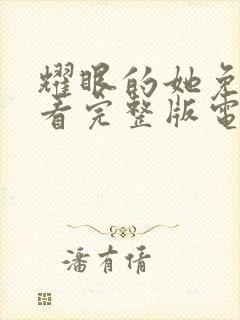 耀眼的她免
看完整版電
潘有倩